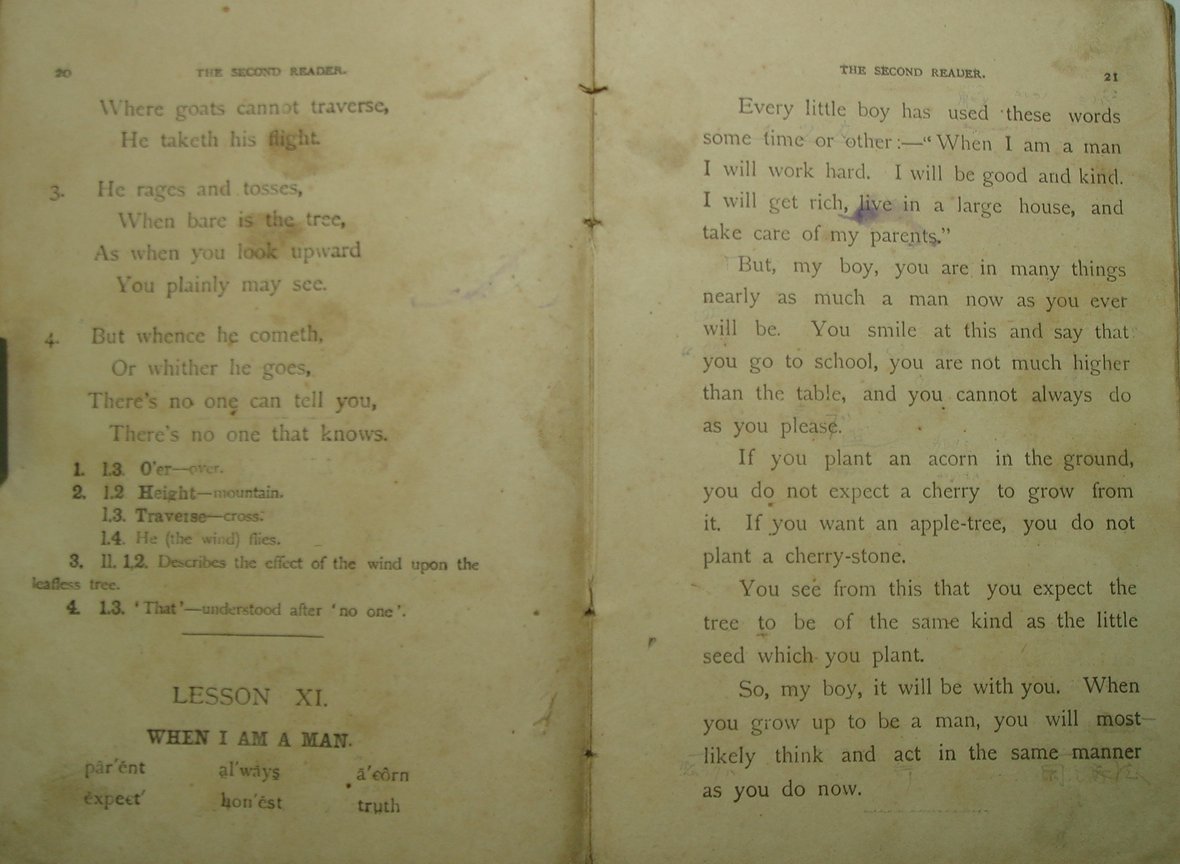 20
THE SECOND READER.
Where goats cannot traverse,
He taketh his flight.
3. He rages and tosses,
When bare is the tree,
As when you look upward
You plainly may see.
4. But whence he cometh,
Or whither he goes,
There's no one can tell you,
There's no one that knows.
1. l.3. O'er—over.
2. l.2 Height—mountain.
l.3. Traverse—cross.
l.4. He (the wind) flies.
3. ll. 1,2. Describes the effect of the wind upon the
leafless tree.
4. l.3. ‘That’—understood after ‘no one’.
LESSON XI.
WHEN I AM A MAN.
pâr'ĕnt a̤l'wāyş ā'eôrn
ĕxpeet' hon'ĕst truth
THE SECOND READER.
21
Every little boy has used these words
some time or other:—“When I am a man
I will work hard. I will be good and kind.
I will get rich, live in a large house, and
take care of my parents.”
But, my boy, you are in many things
nearly as much a man now as you ever
will be. You smile at this and say that
you go to school, you are not much higher
than the table, and you cannot always do
as you please.
If you plant an acorn in the ground,
you do not expect a cherry to grow from
it. If you want an apple-tree, you do not
plant a cherry-stone.
You see from this that you expect the
tree to be of the same kind as the little
seed which you plant.
So, my boy, it will be with you. When
you grow up to be a man, you will most
likely think and act in the same manner
as you do now.